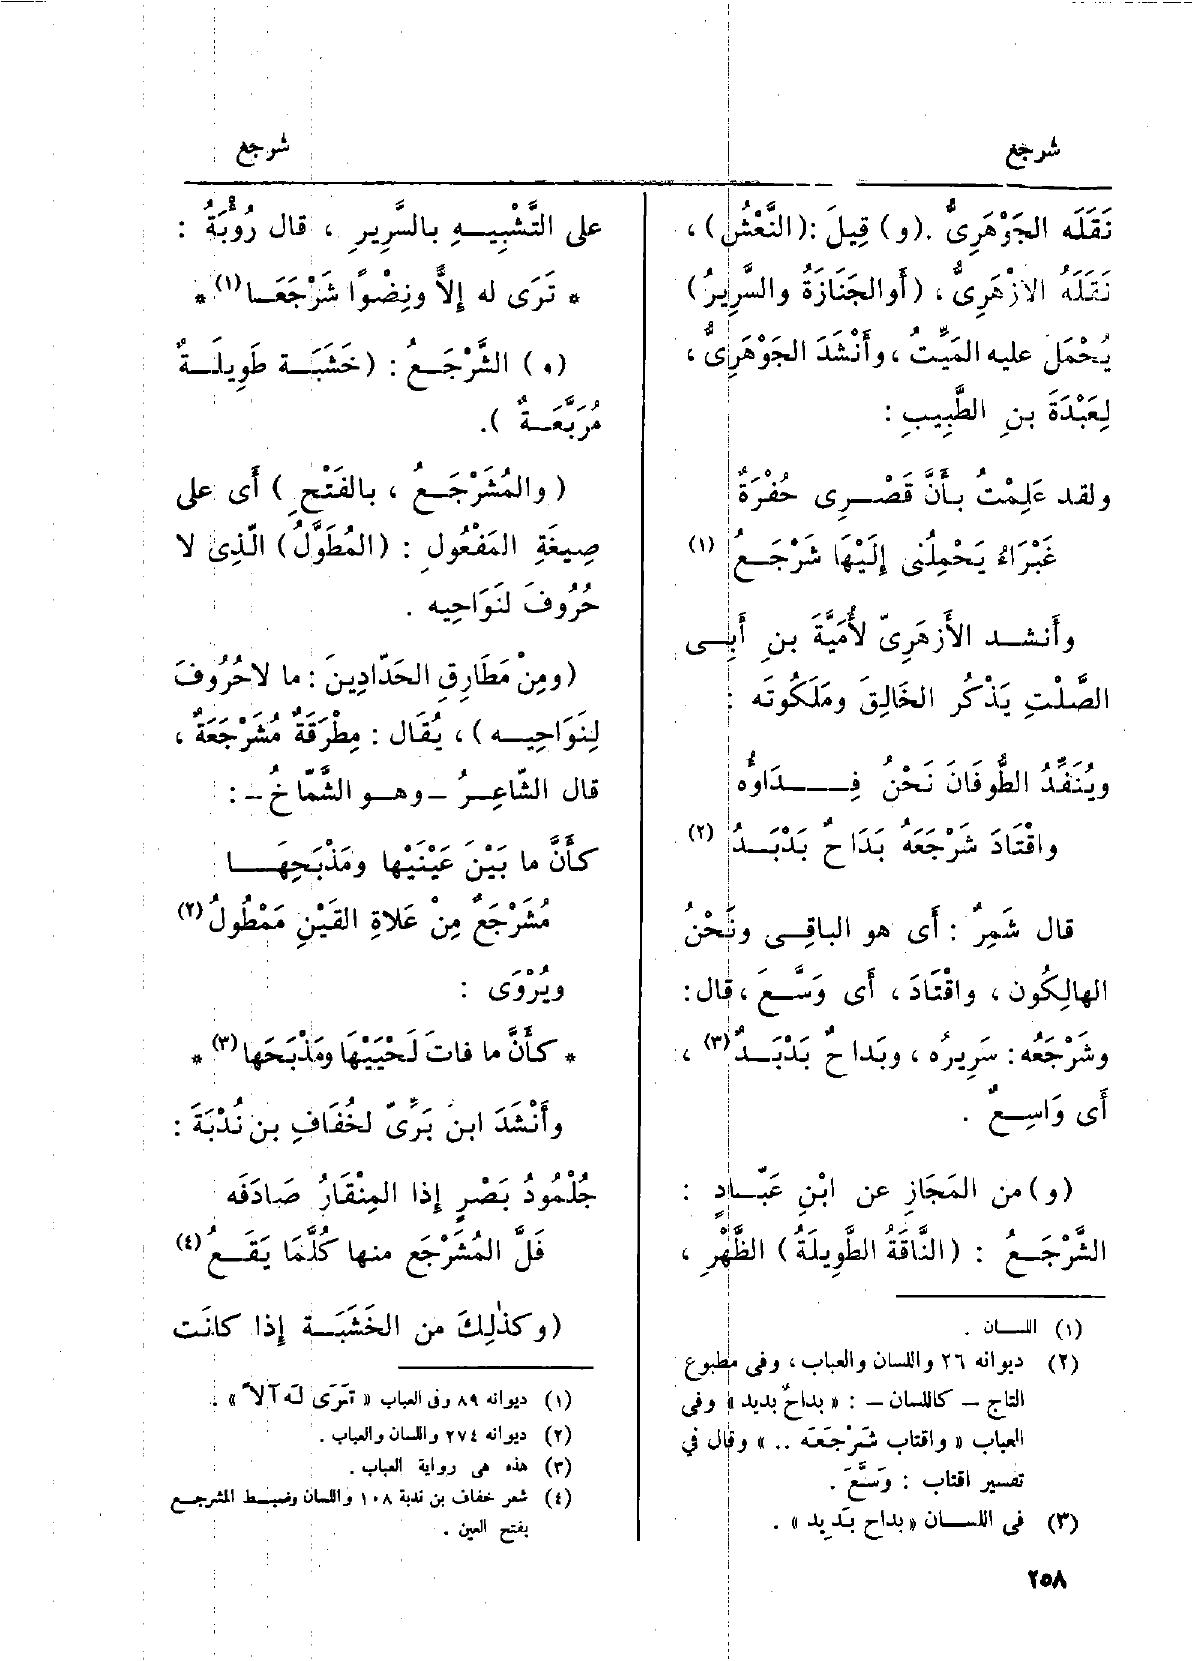 شرجع
شرجع
نَقَلَه الجَوْهَرِىُّ . (و) قِيلَ : (النَّعْشُ) ،
نَقَلَهُ الازْهَرِىُّ ، (أوالجَنَازَةُ والسَّرِيرُ)
يُحْمَل عليه المَيِّتُ ، وأَنْشَدَ الجَوْهَرِىُّ ،
لِعَبْدَةَ بنِ الطَّبِيبِ :
ولقد عَلِمْتُ بأَنَّ قَصْرِى حُفْرَةٌ
غَبْرَاءُ يَحْمِلُنى إِلَيْهَا شَرْجَعُ (١)
وأَنشد الأَزهَرِىّ لأُمَيَّةَ بنِ أَبِى
الصَّلْتِ يَذْكُر الخَالِقَ ومَلَكُوتَه :
ويُنَفِّدُ الطُّوفَانَ نَحْنُ فِدَاوُه
واقْتَادَ شَرْجَعَهُ بَدَاحٌ بَدْبَدُ (٢)
قال شَمِرٌ : أَى هو الباقِى ونَحْنُ
الهالِكُون ، واقْتَادَ ، أَى وَسَّعَ ، قال :
وشَرْجَعُه : سَرِيرُه ، وبَداحٌ بَدْبَدٌ (٣) ،
أَى وَاسِعٌ .
(و) من المَجَازِ عن ابْنِ عَبّادٍ :
الشَّرْجَعُ : (النَّاقَةُ الطَّوِيلَةُ) الظَّهْرِ ،
(١) اللسان .
(٢) ديوانه ٢٦ واللسان والعباب ، وفى مطبوع
التاج – كاللسان – : « بداحٌ بديد » وفى
العباب « واقتاب شَرْجَعَه .. » وقال في
تفسير اقتاب : وَسَّعَ .
(٣) فى اللسان « بداح بَدِيد » .
٢٥٨
على التَّشْبِيهِ بالسَّرِيرِ ، قال رُؤْبَةُ :
* تَرَى له إِلاًّ ونِضْوًا شَرْجَعَا (١) *
(٥) الشَّرْجَعُ : (خَشَبَة طَوِيلَةٌ
مُرَبَّعَةٌ ) .
( والمُشَرْجَعُ ، بالفَتْحِ ) أَى على
صِيغَةِ المَفْعُولِ : (المُطَوَّلُ) الَّذِى لا
حُرُوفَ لنَوَاحِيه .
(ومِنْ مَطَارِقِ الحَدّادِينَ : ما لاحُرُوفَ
لِنَوَاحِيه ) ، يُقَال : مِطْرَقَةٌ مُشَرْجَعَةٌ ،
قال الشّاعِرُ – وهو الشَّمّاخُ – :
كأَنَّ ما بَيْنَ عَيْنَيها ومَذْبَحِهَا
مُشَرْجَعٌ مِنْ عَلاةِ القَيْنِ مَمْطُولُ (٢)
ويُرْوَى :
* كأَنَّ ما فاتَ لَحْيَيْهَا ومَذْبَحَها (٣) *
وأَنْشَدَ ابن بَرِّىّ لخُفَافِ بن نُدْبَةَ :
جُلْمُودُ بَصْرٍ إِذا المِنْقَارُ صَادَفَه
فَلَّ المُشَرْجَع منها كُلَّمَا يَقَعُ (٤)
(وكذٰلِكَ من الخَشَبَة إِذا كانَت
(١) ديوانه ٨٩ وفى العباب « تَرَى لَه آلاً » .
(٢) ديوانه ٢٧٤ واللسان والعباب .
(٣) هذه هى رواية العباب .
(٤) شعر خفاف بن ندبة ١٠٨ واللسان وضبط المشرجع
بفتح العين .